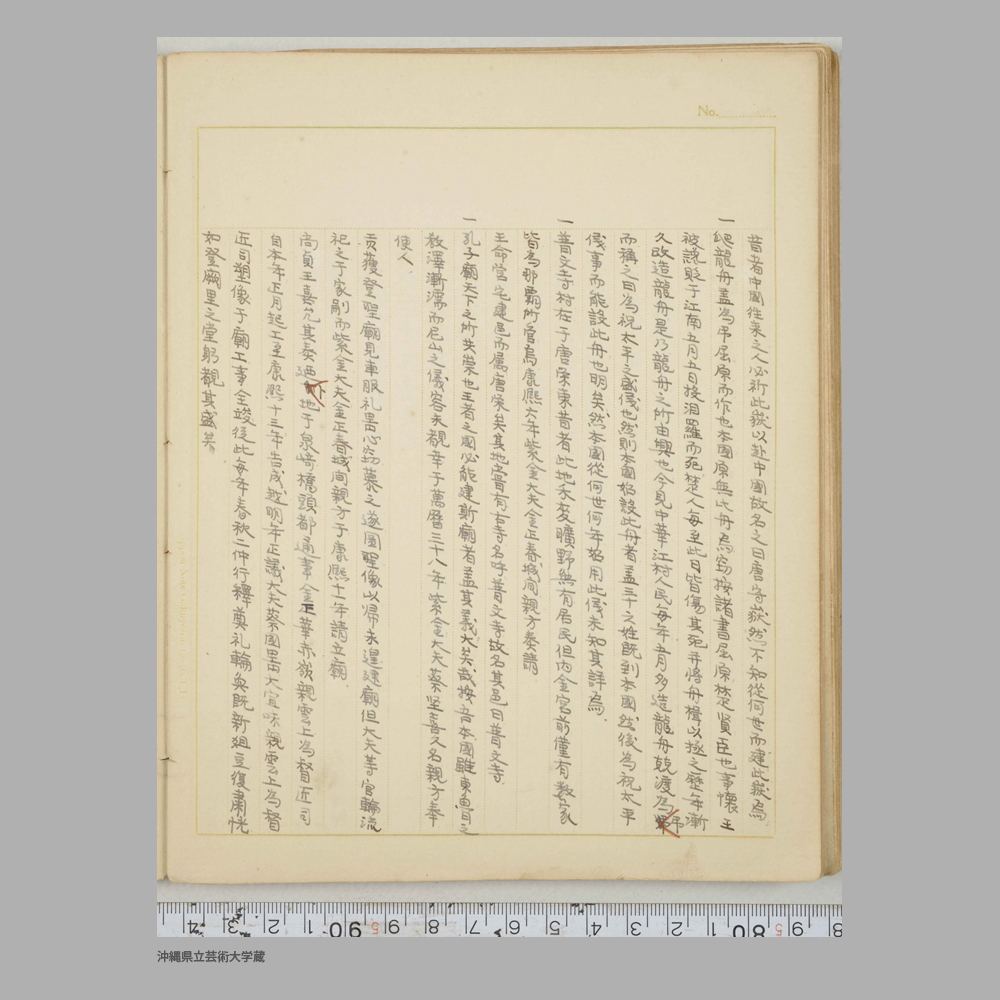 No.
昔者中國往来之人必祈此嶽以赴中國故名之曰唐守嶽然不知從何世而建此嶽焉
一 爬龍舟蓋為弔屈原而作也本國原無此舟焉窃按諸書屈原楚賢臣也事懷王
被讒貶于江南五月五日投汨羅而死楚人毎至此日皆傷其死并恪舟楫以拯之歴年漸
久改造龍舟是乃龍舟之所由興也今見中華江村人民毎年五月多造龍舟競渡為弔
而稱之曰為祝太平之盛儀也然則本國始設此舟者蓋三十六姓既到本國然後為祝太平
儀事而能設此舟也明矣然本國從何世何年始用此儀未知其詳焉
一 普文寺村在于唐栄東昔者此地禾麦曠野無有居民但内金宮前僅有数家
皆為那覇所管焉康熙六年紫金大夫金正春城間親方奏請
王命営宅建邑而属唐栄矣其地嘗有古寺名呼普文寺故名其邑曰普文寺
一 孔子廟天下之所共崇也王者之國必能建斯廟者蓋其義大矣哉按吾本國雖東魯之
教澤漸濡而尼山之儀容未覩幸于萬暦三十八年紫金大夫蔡堅喜友名親方奉
使入
貢獲登聖廟見車服礼器心窃慕之遂圖聖像以帰未遑建廟但大夫等官輪流
祀之于家剛而紫金大夫金正春城間親方于康熙十一年請立廟
尚貞王喜允其奏廼卜地于泉崎橋頭都通事金正華赤嶺親雲上為督匠司
自本年正月起工至康熙十三年告成越明年正議大夫蔡國器大宜味親雲上為督
匠司塑像于廟工事全竣從此毎年春秋二仲行釋奠礼輪奐既新俎豆復肅恍
如登闕里之堂躬覩其盛矣
沖縄県立芸術大学蔵